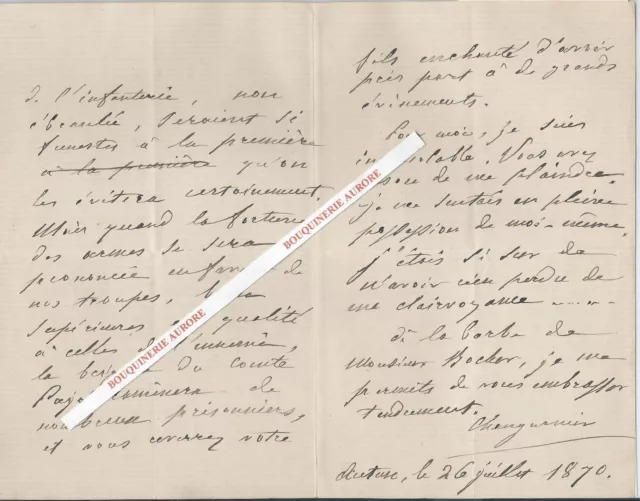 de l'infanterie, non
ébranlée, seraient si
funestes à la première
à la première qu'on
les évitera certainement.
Mais quand la fortune
des armes se sera
prononcée en faveur de
nos troupes,
supérieures qualité
à celles de l'ennemi,
la du Comte
de
nombreux prisonniers,
et vous verrez votre
fils enchanté d'avoir
pris part à de grands
événements.
Pour moi, je suis
Vous avez
de me plaindre.
je me sentais en pleine
possession de moi-même.
j'étais si sur de
n'avoir rien perdu de
ma clairvoyance ......
à la barbe de
Monsieur Bocher, je me
permets de vous embrasser
tendrement.
Changarnier
Autun, le 26 juillet 1870.
BOUQUINERIE AURORE
BOUQUINERIE AURORE
BOUQUINERIE AURORE